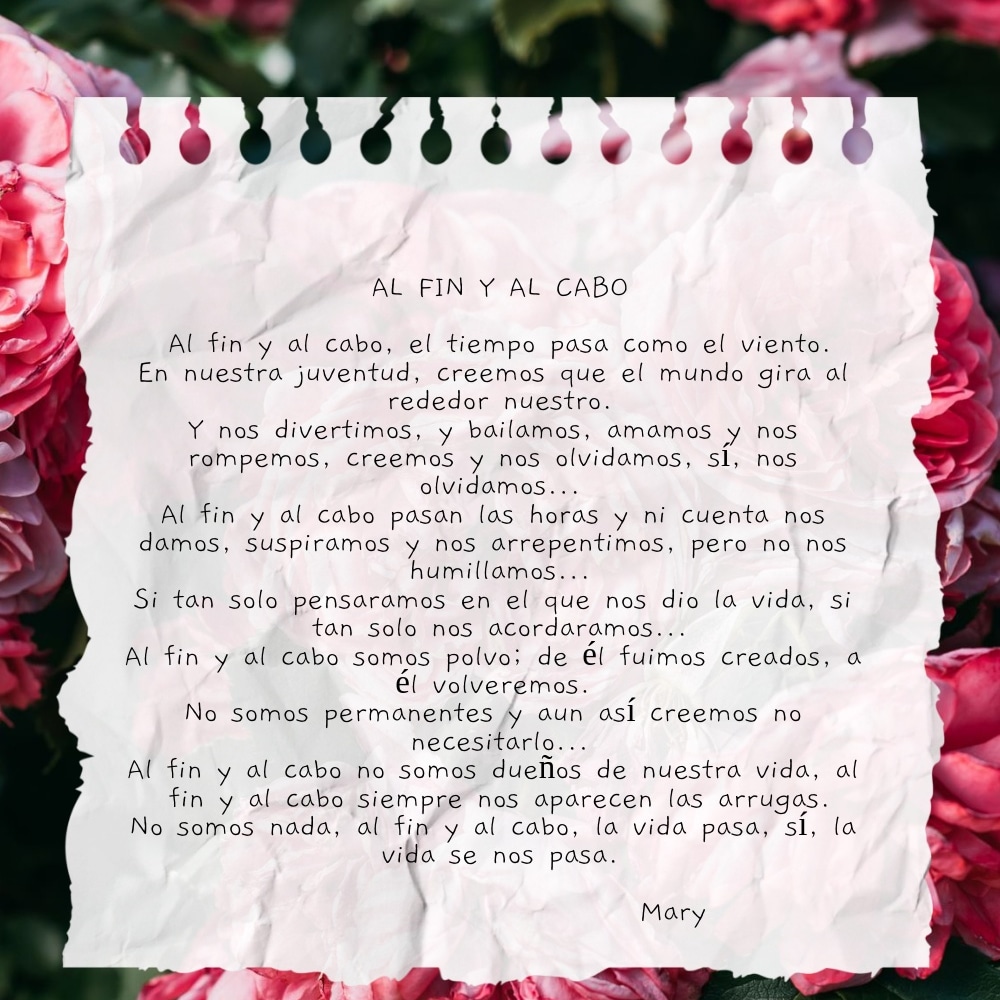 AL FIN Y AL CABO
Al fin y al cabo, el tiempo pasa como el viento.
En nuestra juventud, creemos que el mundo gira al
rededor nuestro.
Y nos divertimos, y bailamos, amamos y nos
rompemos, creemos y nos olvidamos, sí, nos
olvidamos...
Al fin y al cabo pasan las horas y ni cuenta nos
damos, suspiramos y nos arrepentimos, pero no nos
humillamos...
Si tan solo pensaramos en el que nos dio la vida, si
tan solo nos acordaramos...
Al fin y al cabo somos polvo; de él fuimos creados, a
él volveremos.
No somos permanentes y aun así creemos no
necesitarlo...
Al fin y al cabo no somos dueños de nuestra vida, al
fin y al cabo siempre nos aparecen las arrugas.
No somos nada, al fin y al cabo, la vida pasa, sí, la
vida se nos pasa.
Mary